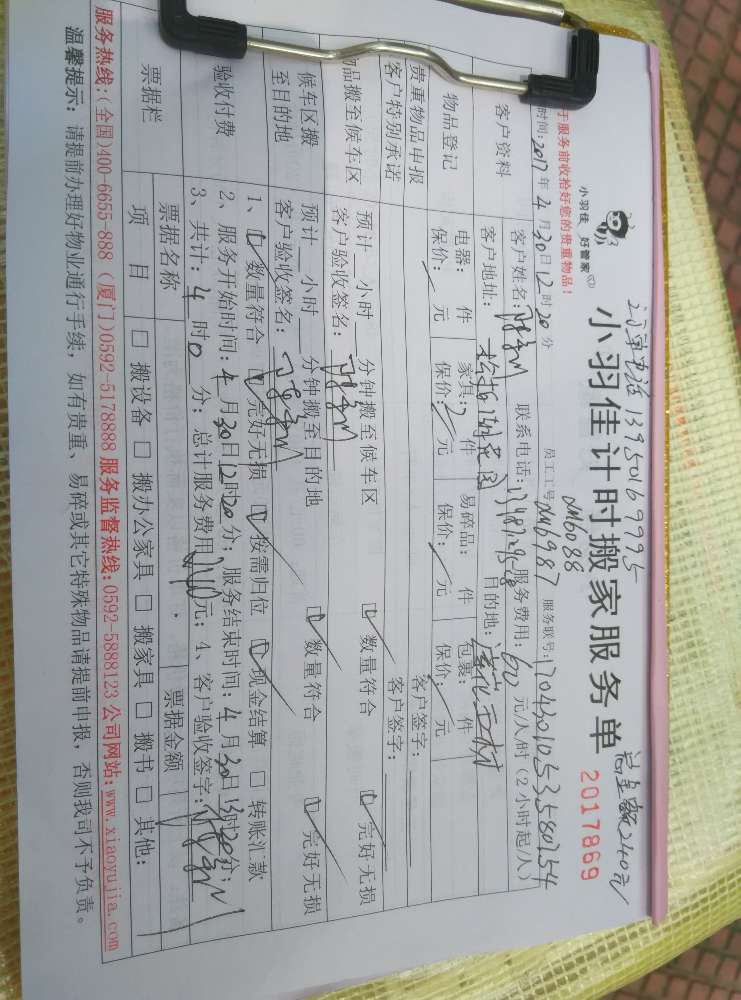 订单电话 13950169995 总金额240元
小羽佳 好管家
小羽佳计时搬家服务单 2017869
于服务前收拾好您的贵重物品！
DM6088
时间：2017年4月30日12时20分 员工工号 DM6987 服务联号：
客户资料 客户姓名： 联系电话： 服务费用：60元/人/时（2小时起/人）
客户地址： 目的地：
物品登记 电器： 件 家具： 件 易碎品： 件 包裹： 件
保价： 元 保价： 元 保价： 元 保价： 元
贵重物品申报 客户签字：
客户特别承诺 客户签字：
物品搬至候车区 预计 小时 分钟搬至候车区
客户验收签名： 数量符合 完好无损
候车区搬至目的地 预计 小时 分钟搬至目的地
客户验收签名： 数量符合 完好无损
验收付费 1、数量符合 完好无损 按需归位 现金结算 □ 转账汇款
2、服务开始时间：4月30日12时20分；服务结束时间：4月30日
3、共计：4时0分；总计服务费用 240元；4、客户验收签字：
票据栏 票据名称 票据金额
项目 □ 搬设备 □ 搬办公家具 □ 搬家具 □ 搬书 □ 其他：
服务热线：（全国）400-6655-888（厦门）0592-5178888 服务监督热线：0592-5888123 公司网站：www.xiaoyujia.com
温馨提示： 请提前办理好物业通行手续，如有贵重、易碎或其它特殊物品请提前申报，否则我司不予负责。